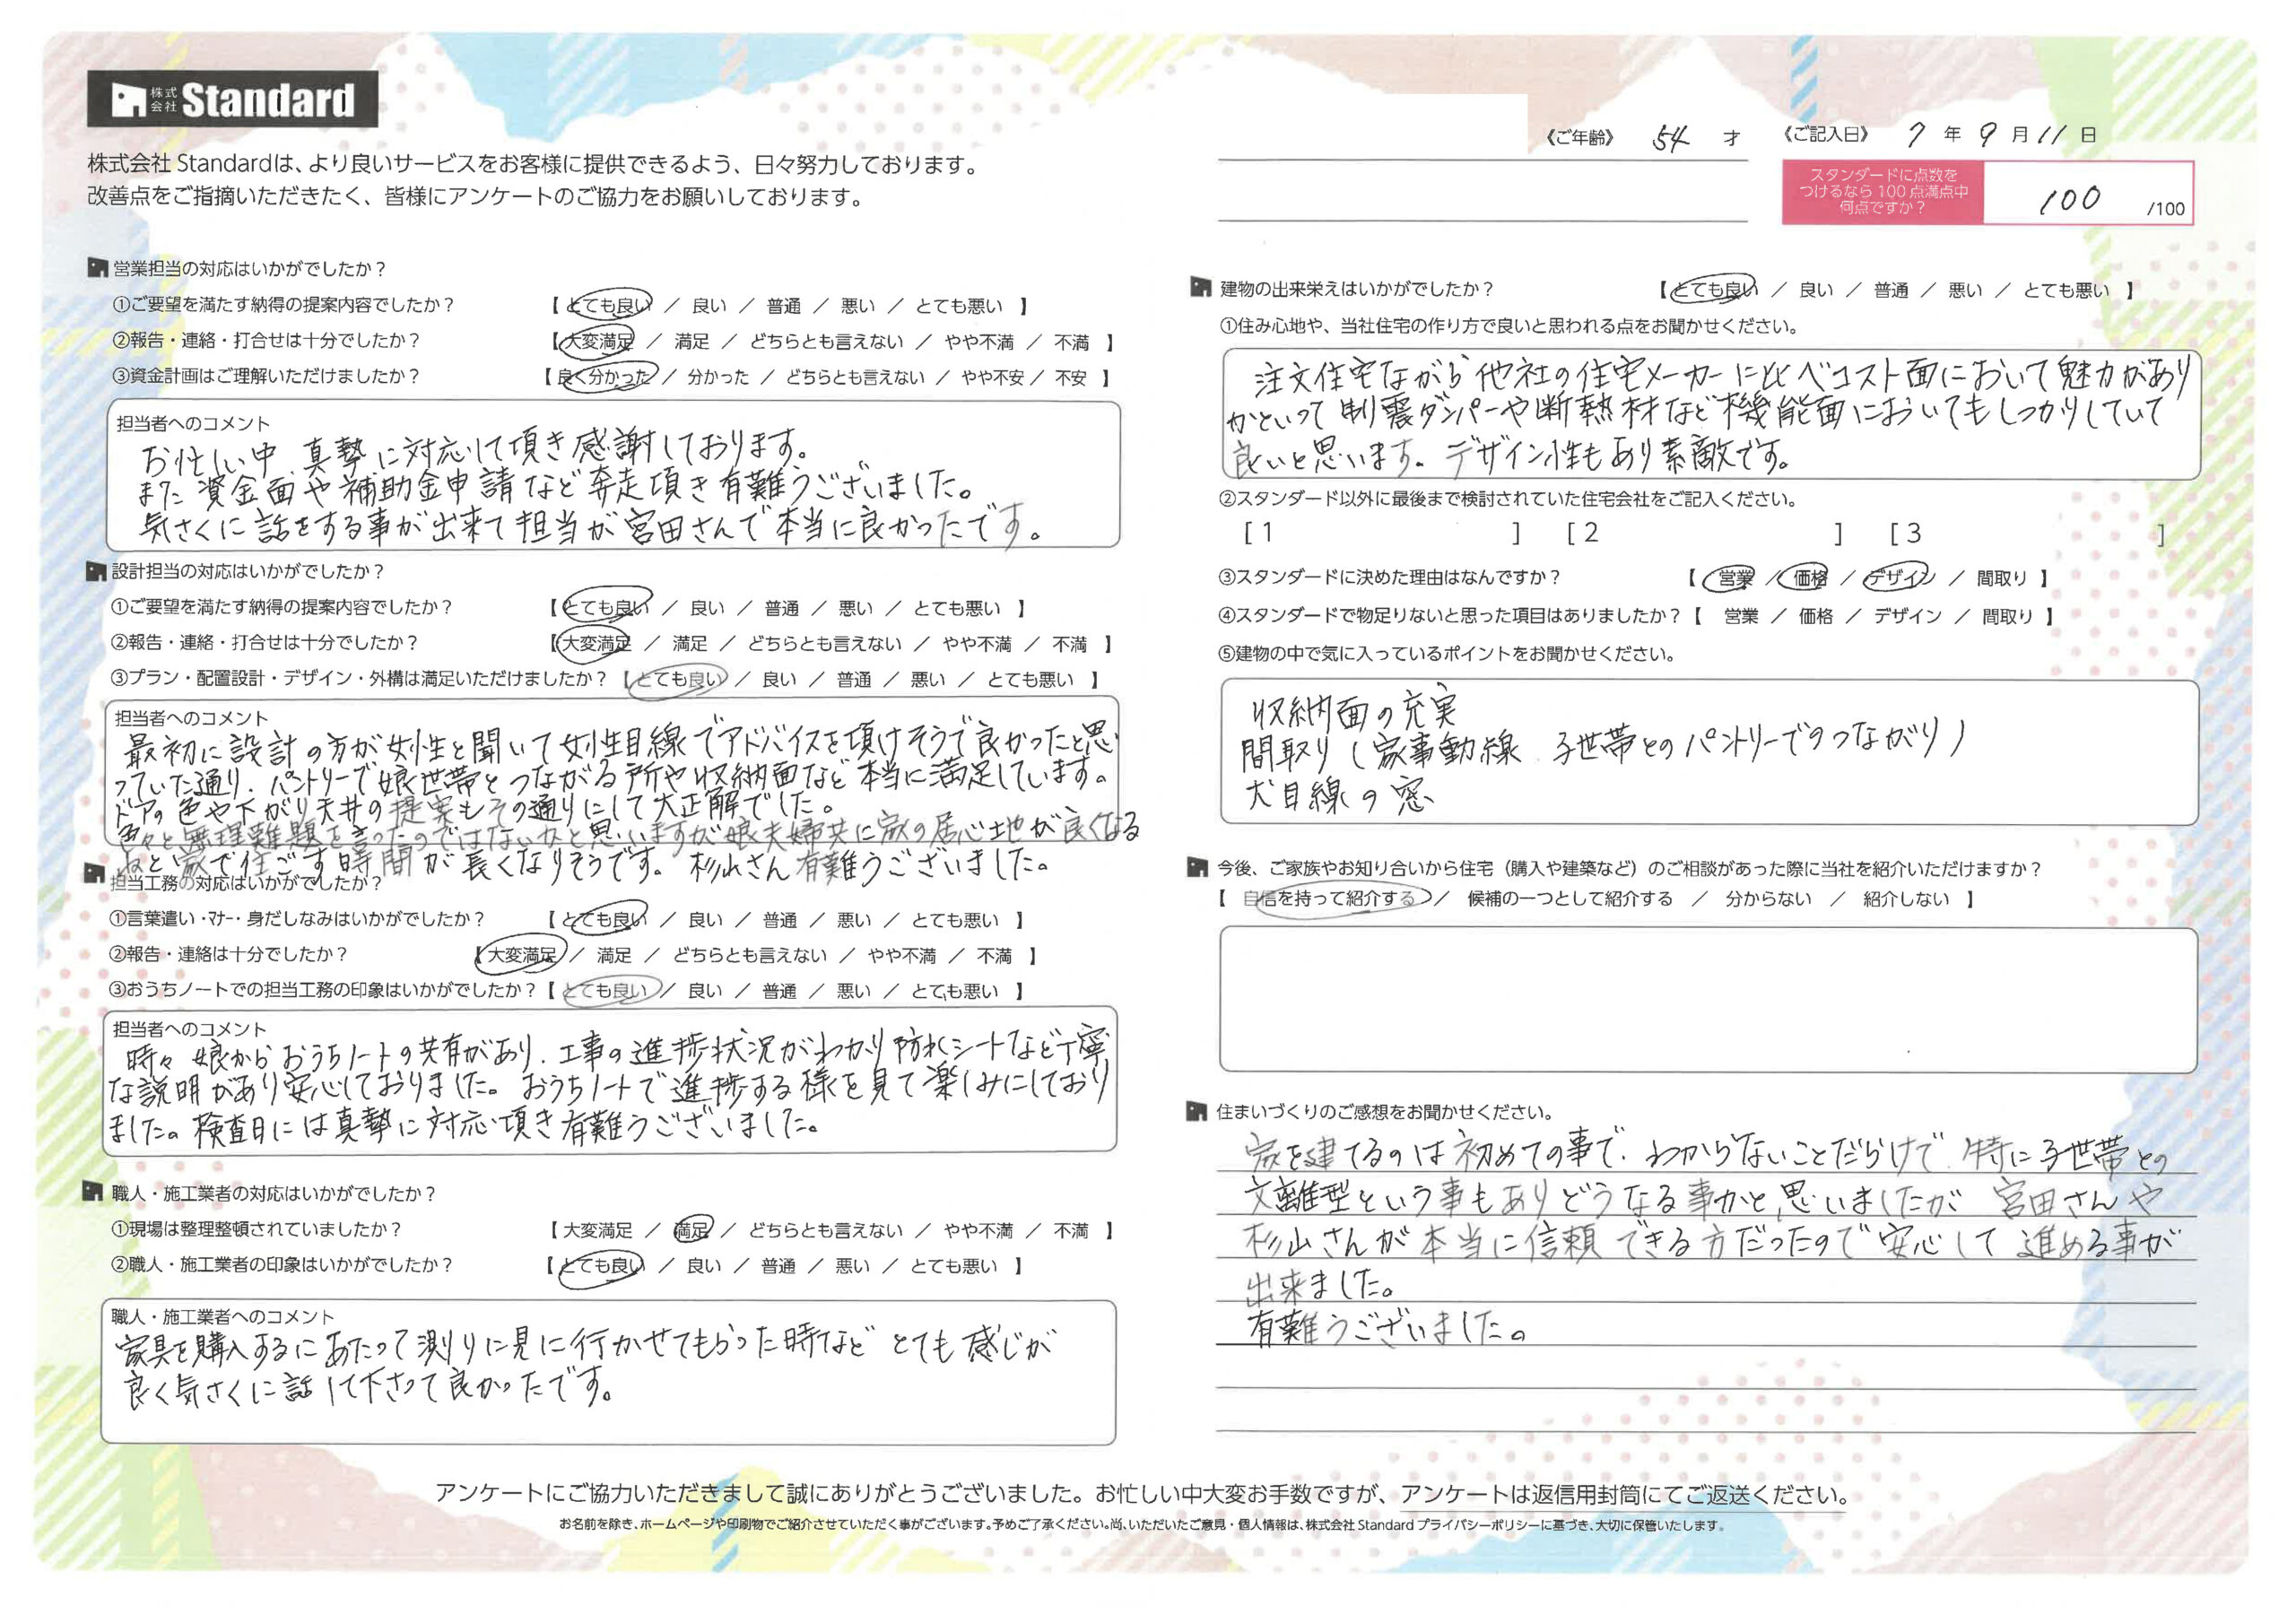 株式会社 Standard
株式会社 Standardは、より良いサービスをお客様に提供できるよう、日々努力しております。
改善点をご指摘いただきたく、皆様にアンケートのご協力をお願いしております。
《ご年齢》 54 才 《ご記入日》 7 年 9 月 11 日
スタンダードに点数を
つけるなら 100 点満点中
何点ですか？
100 /100
営業担当の対応はいかがでしたか？
①ご要望を満たす納得の提案内容でしたか？ 【 とても良い ／ 良い ／ 普通 ／ 悪い ／ とても悪い 】
②報告・連絡・打合せは十分でしたか？ 【 大変満足 ／ 満足 ／ どちらとも言えない ／ やや不満 ／ 不満 】
③資金計画はご理解いただけましたか？ 【 良く分かった ／ 分かった ／ どちらとも言えない ／ やや不安 ／ 不安 】
担当者へのコメント
お忙しい中、真摯に対応して頂き感謝しております。
また資金面や補助金申請など奔走頂き有難うございました。
気さくに話をする事が出来て担当が宮田さんで本当に良かったです。
設計担当の対応はいかがでしたか？
①ご要望を満たす納得の提案内容でしたか？ 【 とても良い ／ 良い ／ 普通 ／ 悪い ／ とても悪い 】
②報告・連絡・打合せは十分でしたか？ 【 大変満足 ／ 満足 ／ どちらとも言えない ／ やや不満 ／ 不満 】
③プラン・配置設計・デザイン・外構は満足いただけましたか？ 【 とても良い ／ 良い ／ 普通 ／ 悪い ／ とても悪い 】
担当者へのコメント
最初に設計の方が女性と聞いて女性目線でアドバイスを頂けそうで良かったと思
っていた通り、パントリーで娘世帯とつながる所や収納面など本当に満足しています。
ドアの色や下がり天井の提案もその通りにして大正解でした。
色々と無理難題を言ったのではないかと思いますが娘夫婦共に家の居心地が良くなる
ねと家で過ごす時間が長くなりそうです。杉山さん有難うございました。
担当工務の対応はいかがでしたか？
①言葉遣い・マナー・身だしなみはいかがでしたか？ 【 とても良い ／ 良い ／ 普通 ／ 悪い ／ とても悪い 】
②報告・連絡は十分でしたか？ 【 大変満足 ／ 満足 ／ どちらとも言えない ／ やや不満 ／ 不満 】
③おうちノートでの担当工務の印象はいかがでしたか？ 【 とても良い ／ 良い ／ 普通 ／ 悪い ／ とても悪い 】
担当者へのコメント
時々娘からおうちノートの共有があり、工事の進捗状況がわかり防水シートなど丁寧
な説明があり安心しておりました。おうちノートで進捗する様を見て楽しみにしており
ました。検査日には真摯に対応頂き有難うございました。
職人・施工業者の対応はいかがでしたか？
①現場は整理整頓されていましたか？ 【 大変満足 ／ 満足 ／ どちらとも言えない ／ やや不満 ／ 不満 】
②職人・施工業者の印象はいかがでしたか？ 【 とても良い ／ 良い ／ 普通 ／ 悪い ／ とても悪い 】
職人・施工業者へのコメント
家具を購入するにあたって測りに見に行かせてもらった時など とても感じが
良く気さくに話して下さって良かったです。
建物の出来栄えはいかがでしたか？ 【 とても良い ／ 良い ／ 普通 ／ 悪い ／ とても悪い 】
①住み心地や、当社住宅の作り方で良いと思われる点をお聞かせください。
注文住宅ながら他社の住宅メーカーに比べコスト面において魅力があり
かといって制震ダンパーや断熱材など機能面においてもしっかりしていて
良いと思います。デザイン性もあり素敵です。
②スタンダード以外に最後まで検討されていた住宅会社をご記入ください。
[ 1 ] [ 2 ] [ 3 ]
③スタンダードに決めた理由はなんですか？ 【 営業 ／ 価格 ／ デザイン ／ 間取り 】
④スタンダードで物足りないと思った項目はありましたか？ 【 営業 ／ 価格 ／ デザイン ／ 間取り 】
⑤建物の中で気に入っているポイントをお聞かせください。
収納面の充実
間取り（家事動線、子世帯とのパントリーでのつながり）
犬目線の窓
今後、ご家族やお知り合いから住宅（購入や建築など）のご相談があった際に当社を紹介いただけますか？
【 自信を持って紹介する ／ 候補の一つとして紹介する ／ 分からない ／ 紹介しない 】
住まいづくりのご感想をお聞かせください。
家を建てるのは初めての事で、わからないことだらけで、特に子世帯との
文離型という事もありどうなる事かと思いましたが 宮田さんや
杉山さんが本当に信頼できる方だったので安心して進める事が
出来ました。
有難うございました。
アンケートにご協力いただきまして誠にありがとうございました。お忙しい中大変お手数ですが、アンケートは返信用封筒にてご返送ください。
お名前を除き、ホームページや印刷物でご紹介させていただく事がございます。予めご了承ください。尚、いただいたご意見・個人情報は、株式会社 Standard プライバシーポリシーに基づき、大切に保管いたします。